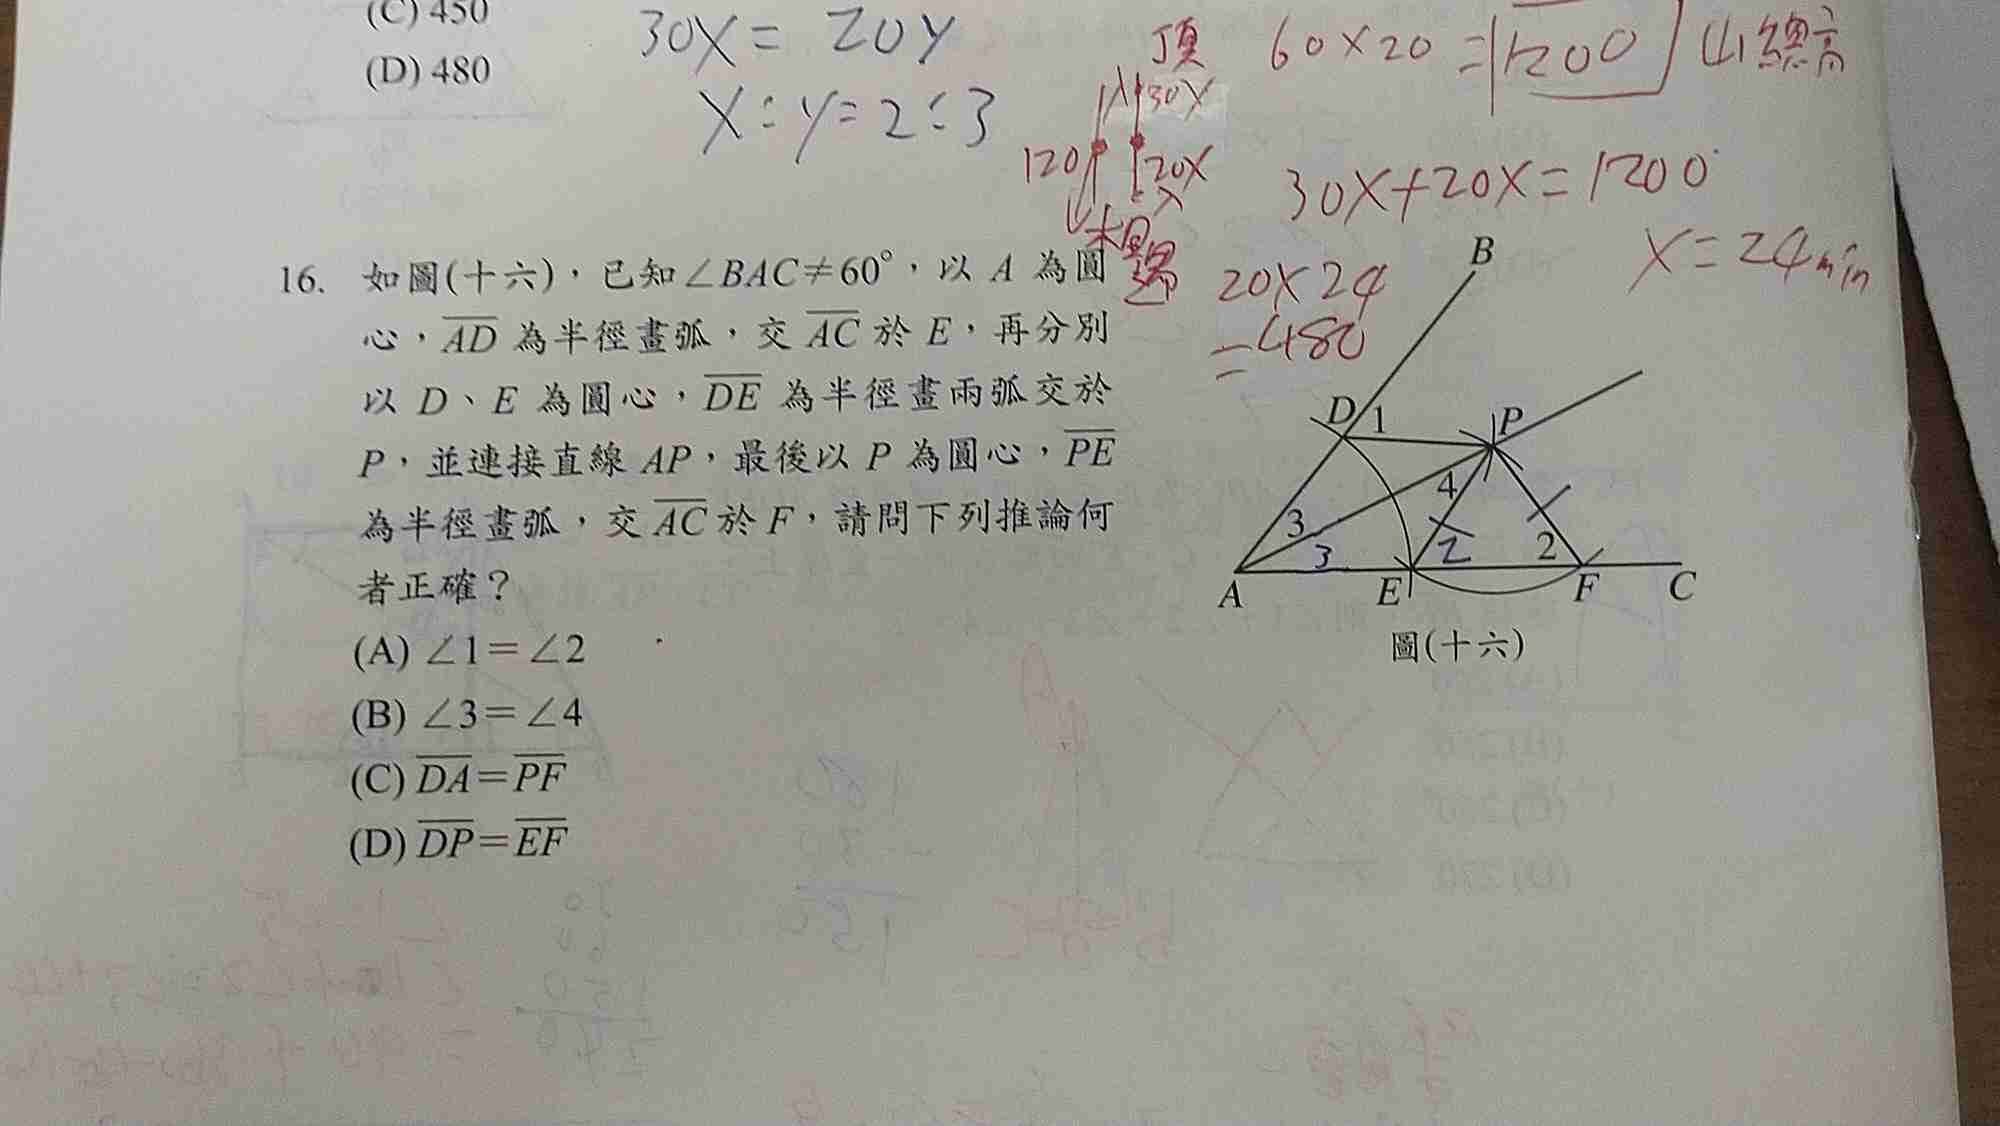 (C) 450
(D) 480
30X = 20Y
X:Y=2:3
頂
60×20=1200 山總高
30X
120
20X
30X+20X=1200
X=24min
20×24
=480
16. 如圖(十六)，已知∠BAC≠60°，以 A 為圓
心，AD 為半徑畫弧，交 AC 於 E，再分別
以 D、E 為圓心，DE 為半徑畫兩弧交於
P，並連接直線 AP，最後以 P 為圓心，PE
為半徑畫弧，交 AC 於 F，請問下列推論何
者正確？
(A) ∠1＝∠2
(B) ∠3＝∠4
(C) DA＝PF
(D) DP＝EF
B
D 1 P
4
3 3 2 2
A E F C
圖(十六)